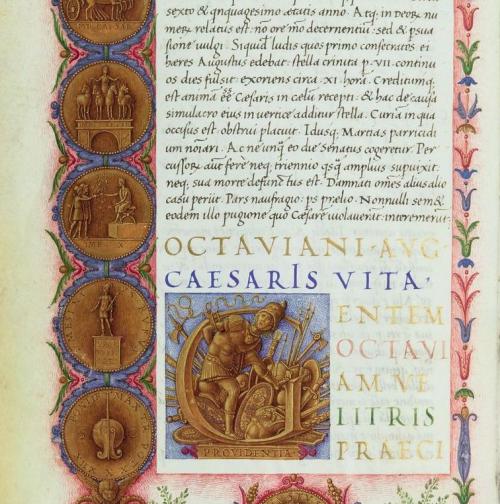 sexto & qnquagesimo ętatis anno. Atq; in Deoꝝ nu
meꝝ relatus est. nō ore mō decernentiū: sed & psua
sione uulgi. Siquid ludis quos primo consecratos ei
heres Augustus edebat: stella crinita p. vii. continu
os dies fulsit: exoriens circa. xi. horā. Creditumq;
est animā ēē Cęsaris in cęlū recepti: & hac de causa
simulacro eius in uertice additur stella. Curia in qua
occisus est obstrui placuit. Idusq; Martias parricidi
um nōari. Ac ne unq̄ eo die Senatus cogeretur. Per
cussoꝝ aūt fere neq; triennio qsq̄ amplius supuixit:
neq; sua morte defunctus est. Damnati omēs alius alio
casu periit. Pars naufragio: ps prelio. Nonnulli sem&
eodem illo pugione quo Cęsarē uiolauerāt: interemerūt.
OCTAVIANI AVG
CAESARIS VITA
GENTEM
OCTAVI
AM VE
LITRIS
PRAECI
PROVIDENTIA
CAESAR
IMP X